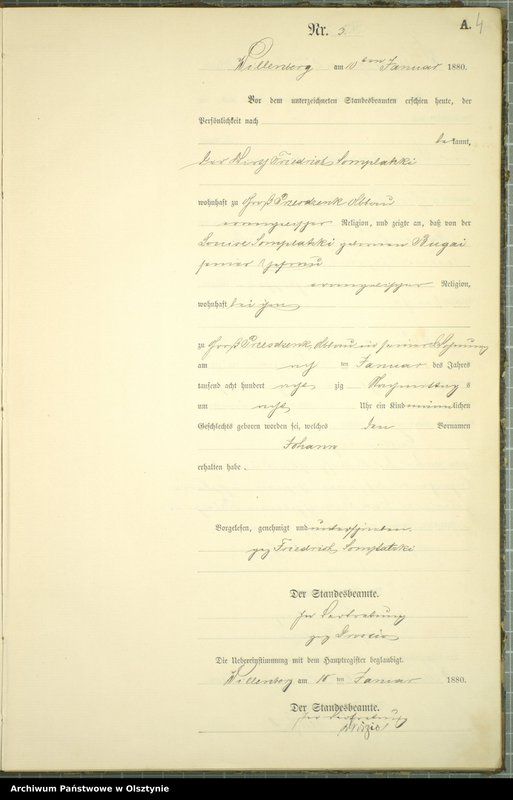 A. 4
Nr. 5
Willenberg am 10ten Januar 1880.
Vor dem unterzeichneten Standesbeamten erschien heute, der
Persönlichkeit nach
bekannt,
der Wirth Friedrich Somplatzki
wohnhaft zu Groß Przesdzenk Abbau
evangelischer Religion, und zeigte an, daß von der
Louise Somplatzki geborenen Bugai
seiner Ehefrau
evangelischer Religion,
wohnhaft bei ihm
zu Groß Przesdzenk, Abbau in seiner Wohnung
am ten Januar des Jahres
tausend acht hundert achtzig Nachmittags
um acht Uhr ein Kind männlichen
Geschlechts geboren worden sei, welches den Vornamen
Johann
erhalten habe.
Vorgelesen, genehmigt und unterschrieben
gez Friedrich Somplatzki
Der Standesbeamte.
In Vertretung
gez
Die Uebereinstimmung mit dem Hauptregister beglaubigt.
Willenberg am 10ten Januar 1880.
Der Standesbeamte.
In Vertretung
Archiwum Państwowe w Olsztynie